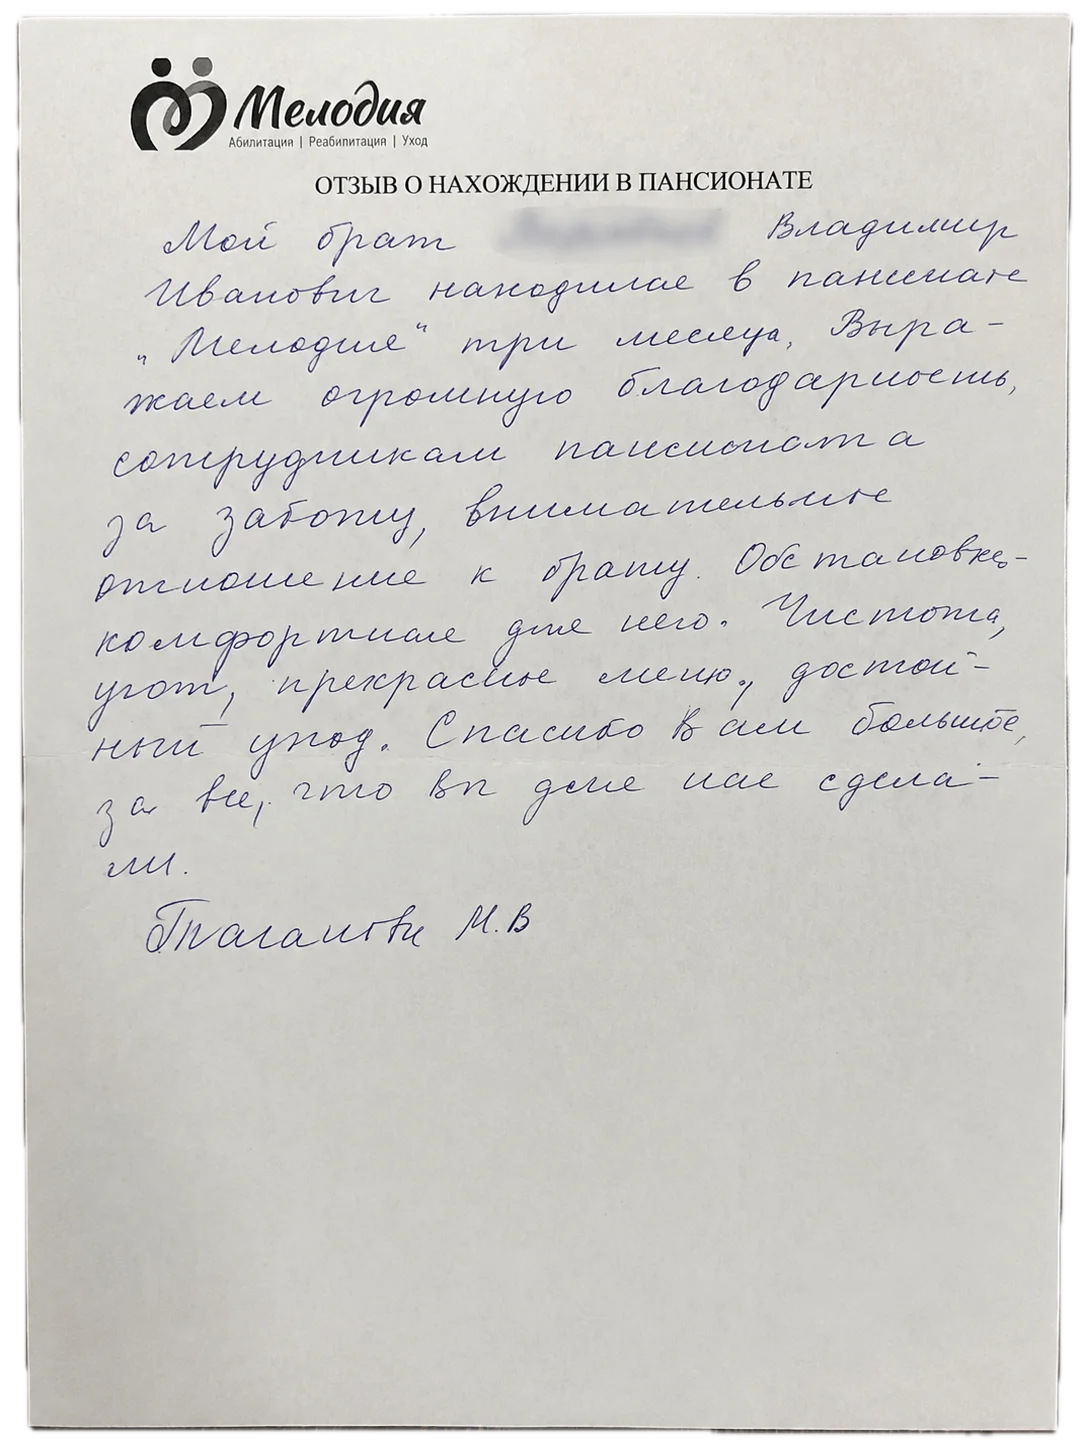 Мелодия
Абилитация | Реабилитация | Уход
ОТЗЫВ О НАХОЖДЕНИИ В ПАНСИОНАТЕ
Мой брат Владимир
Иванович находился в пансионате
"Мелодия" три месяца, Выра-
жаем огромную благодарность,
сотрудникам пансионата
за заботу, внимательное
отношение к брату. Обстановка-
комфортная для него. Чистота,
уют, прекрасное меню, достой-
ный уход. Спасибо Вам большое,
за все, что Вы для нас сдела-
ли.
М.В